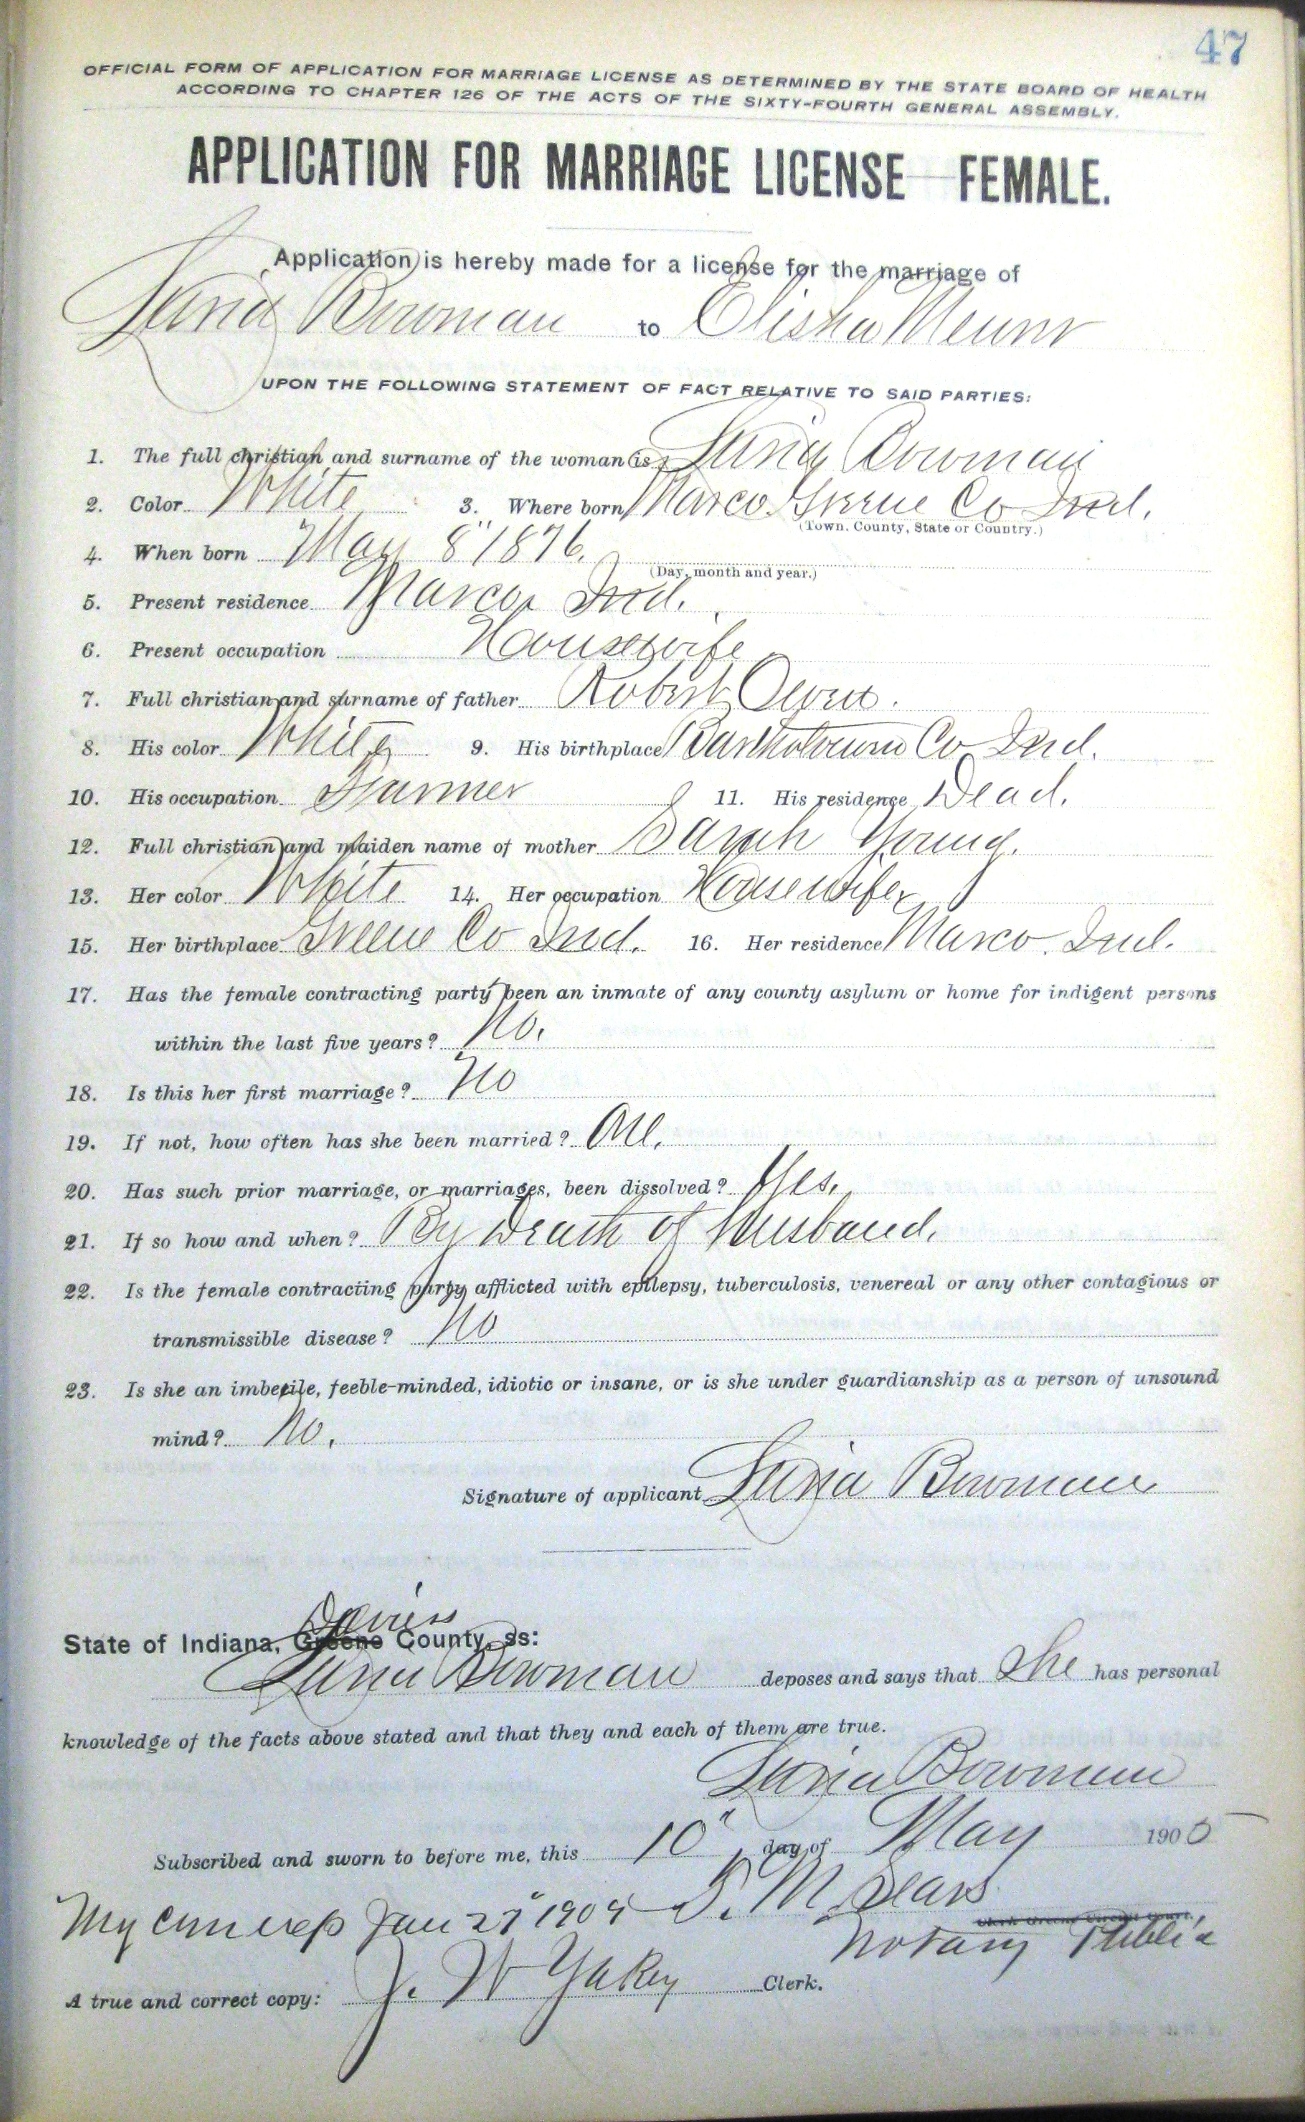 47
OFFICIAL FORM OF APPLICATION FOR MARRIAGE LICENSE AS DETERMINED BY THE STATE BOARD OF HEALTH
ACCORDING TO CHAPTER 126 OF THE ACTS OF THE SIXTY-FOURTH GENERAL ASSEMBLY.
APPLICATION FOR MARRIAGE LICENSE FEMALE.
Application is hereby made for a license for the marriage of
Bowman to Elisha
UPON THE FOLLOWING STATEMENT OF FACT RELATIVE TO SAID PARTIES:
1. The full christian and surname of the woman is Bowman
2. Color White 3. Where born Marco Greene Co Ind.
(Town, County, State or Country.)
4. When born May 8" 1876.
(Day, month and year.)
5. Present residence Marco Ind.
6. Present occupation Housewife
7. Full christian and surname of father Robert Owen.
8. His color White 9. His birthplace Bartholomew Co Ind.
10. His occupation Farmer 11. His residence Dead.
12. Full christian and maiden name of mother Sarah Young.
13. Her color White 14. Her occupation Housewife
15. Her birthplace Greene Co Ind. 16. Her residence Marco. Ind.
17. Has the female contracting party been an inmate of any county asylum or home for indigent persons
within the last five years? No.
18. Is this her first marriage? No
19. If not, how often has she been married? One.
20. Has such prior marriage, or marriages, been dissolved? Yes.
21. If so how and when? By Death of Husband.
22. Is the female contracting party afflicted with epilepsy, tuberculosis, venereal or any other contagious or
transmissible disease? No
23. Is she an imbecile, feeble-minded, idiotic or insane, or is she under guardianship as a person of unsound
mind? No.
Signature of applicant Bowman
Daviess
State of Indiana, Greene County, ss:
Bowman deposes and says that She has personal
knowledge of the facts above stated and that they and each of them are true.
Bowman
Subscribed and sworn to before me, this 10" day of May 1905
My com exp Jan 27" 1909 M. Sears
Clerk Greene Circuit Court.
Notary Public
A true and correct copy: W Yakey Clerk.